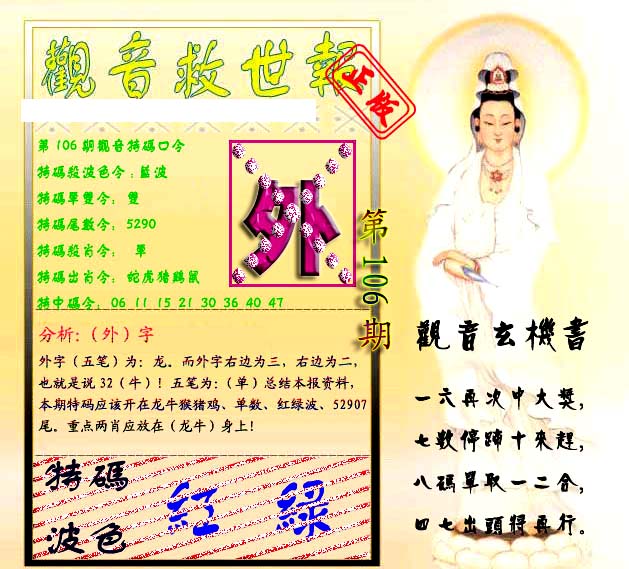 觀音救世報
正版
第106期觀音特碼口令
特碼殺波色令:藍波
特碼單雙令: 雙
特碼尾數令: 5290
特碼殺肖令: 單
特碼出肖令: 蛇虎猪鷄鼠
特中碼令: 06 11 15 21 30 36 40 47
外
第106期
分析:（外）字
外字（五笔）为：龙。而外字右边为三，右边为二，
也就是说32（牛）！五笔为：（单）总结本报资料，
本期特码应该开在龙牛猴猪鸡、单数、红绿波、52907
尾。重点两肖应放在（龙牛）身上！
特碼
波色
紅 綠
觀音玄機書
一六再次中大獎，
七數停蹄十來趕，
八碼單取一二合，
四七出頭將再行。